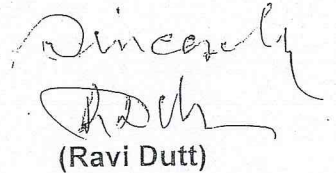 Sincerely
(Ravi Dutt)